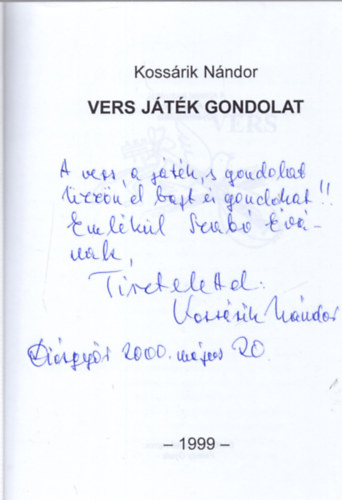 Kossárik Nándor
VERS JÁTÉK GONDOLAT
A vers, a játék, s gondolat
űzzön el bajt és gondokat!!
Emlékül Szabó Évá-
nak,
Tisztelettel:
Kossárik Nándor
Diósgyőr 2000. május 20.
– 1999 –